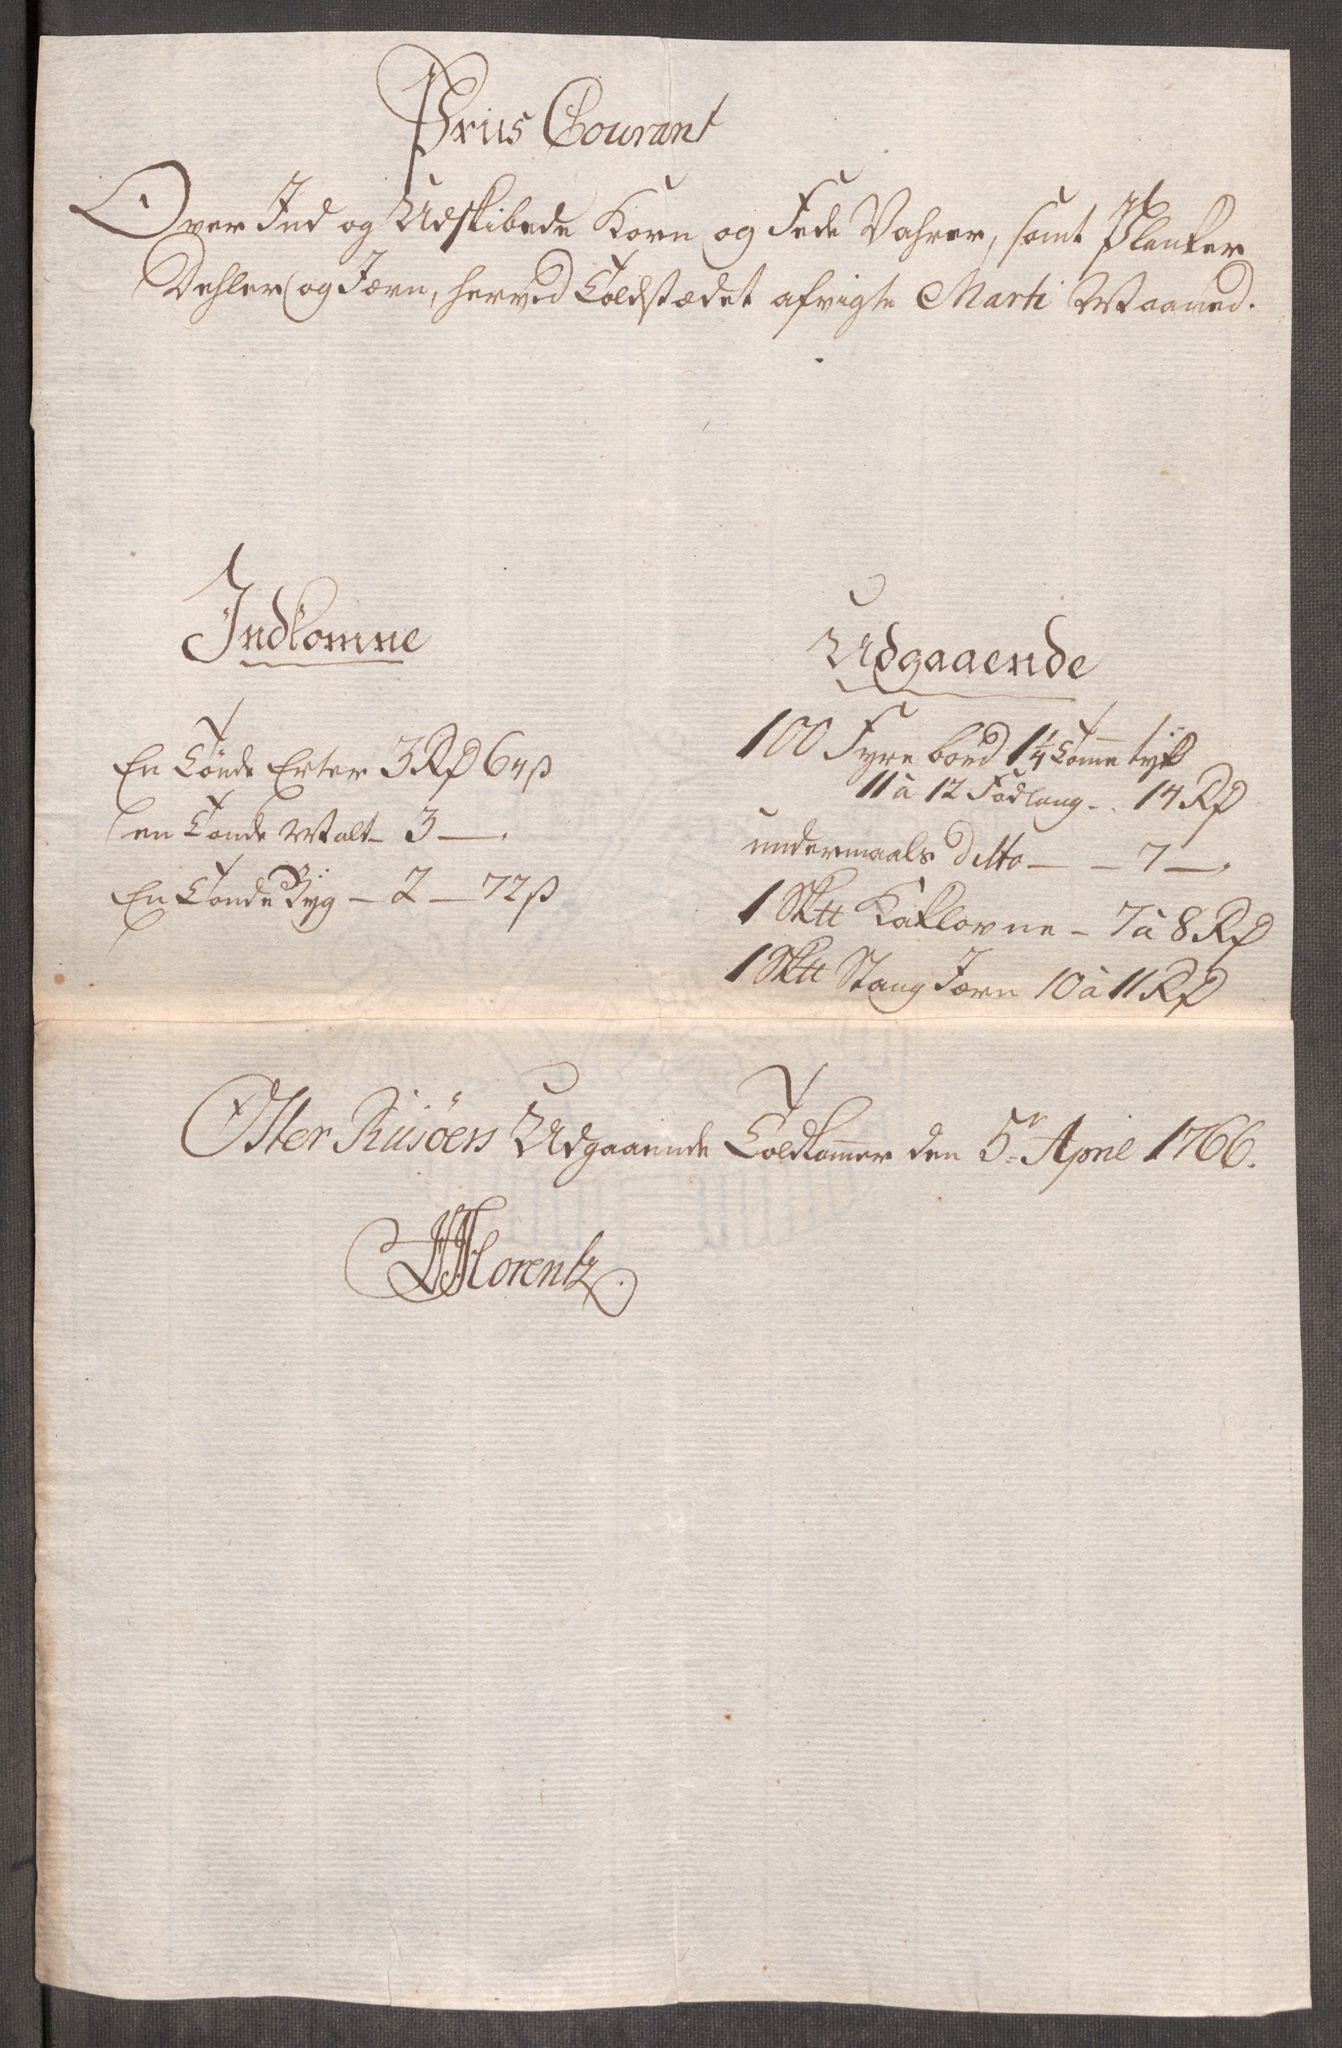 Priis Courant
Over Ind og Udskibede Korn og Fede Vahrer, samt Planker
Dehler og Jærn, herved Toldstædet afvigte Marti Maaned.
Indkomne
En Tönde Erter 3 Rd 64 ß
en Tønde Malt - 3 —.
En Tønde Byg - 2 — 72 ß
Udgaaende
100 Fyrre bord 1 1/4 Tomme tyk
11 à 12 Fod lang - . 14 Rd
undermaals ditto — — 7 —.
1 Sk℔ Kaklovne - 7 à 8 Rd
1 Sk℔ Stang Jærn 10 à 11 Rd
Oster Riisöers Udgaaende Toldkammer den 5te April 1766.
Lorentz.